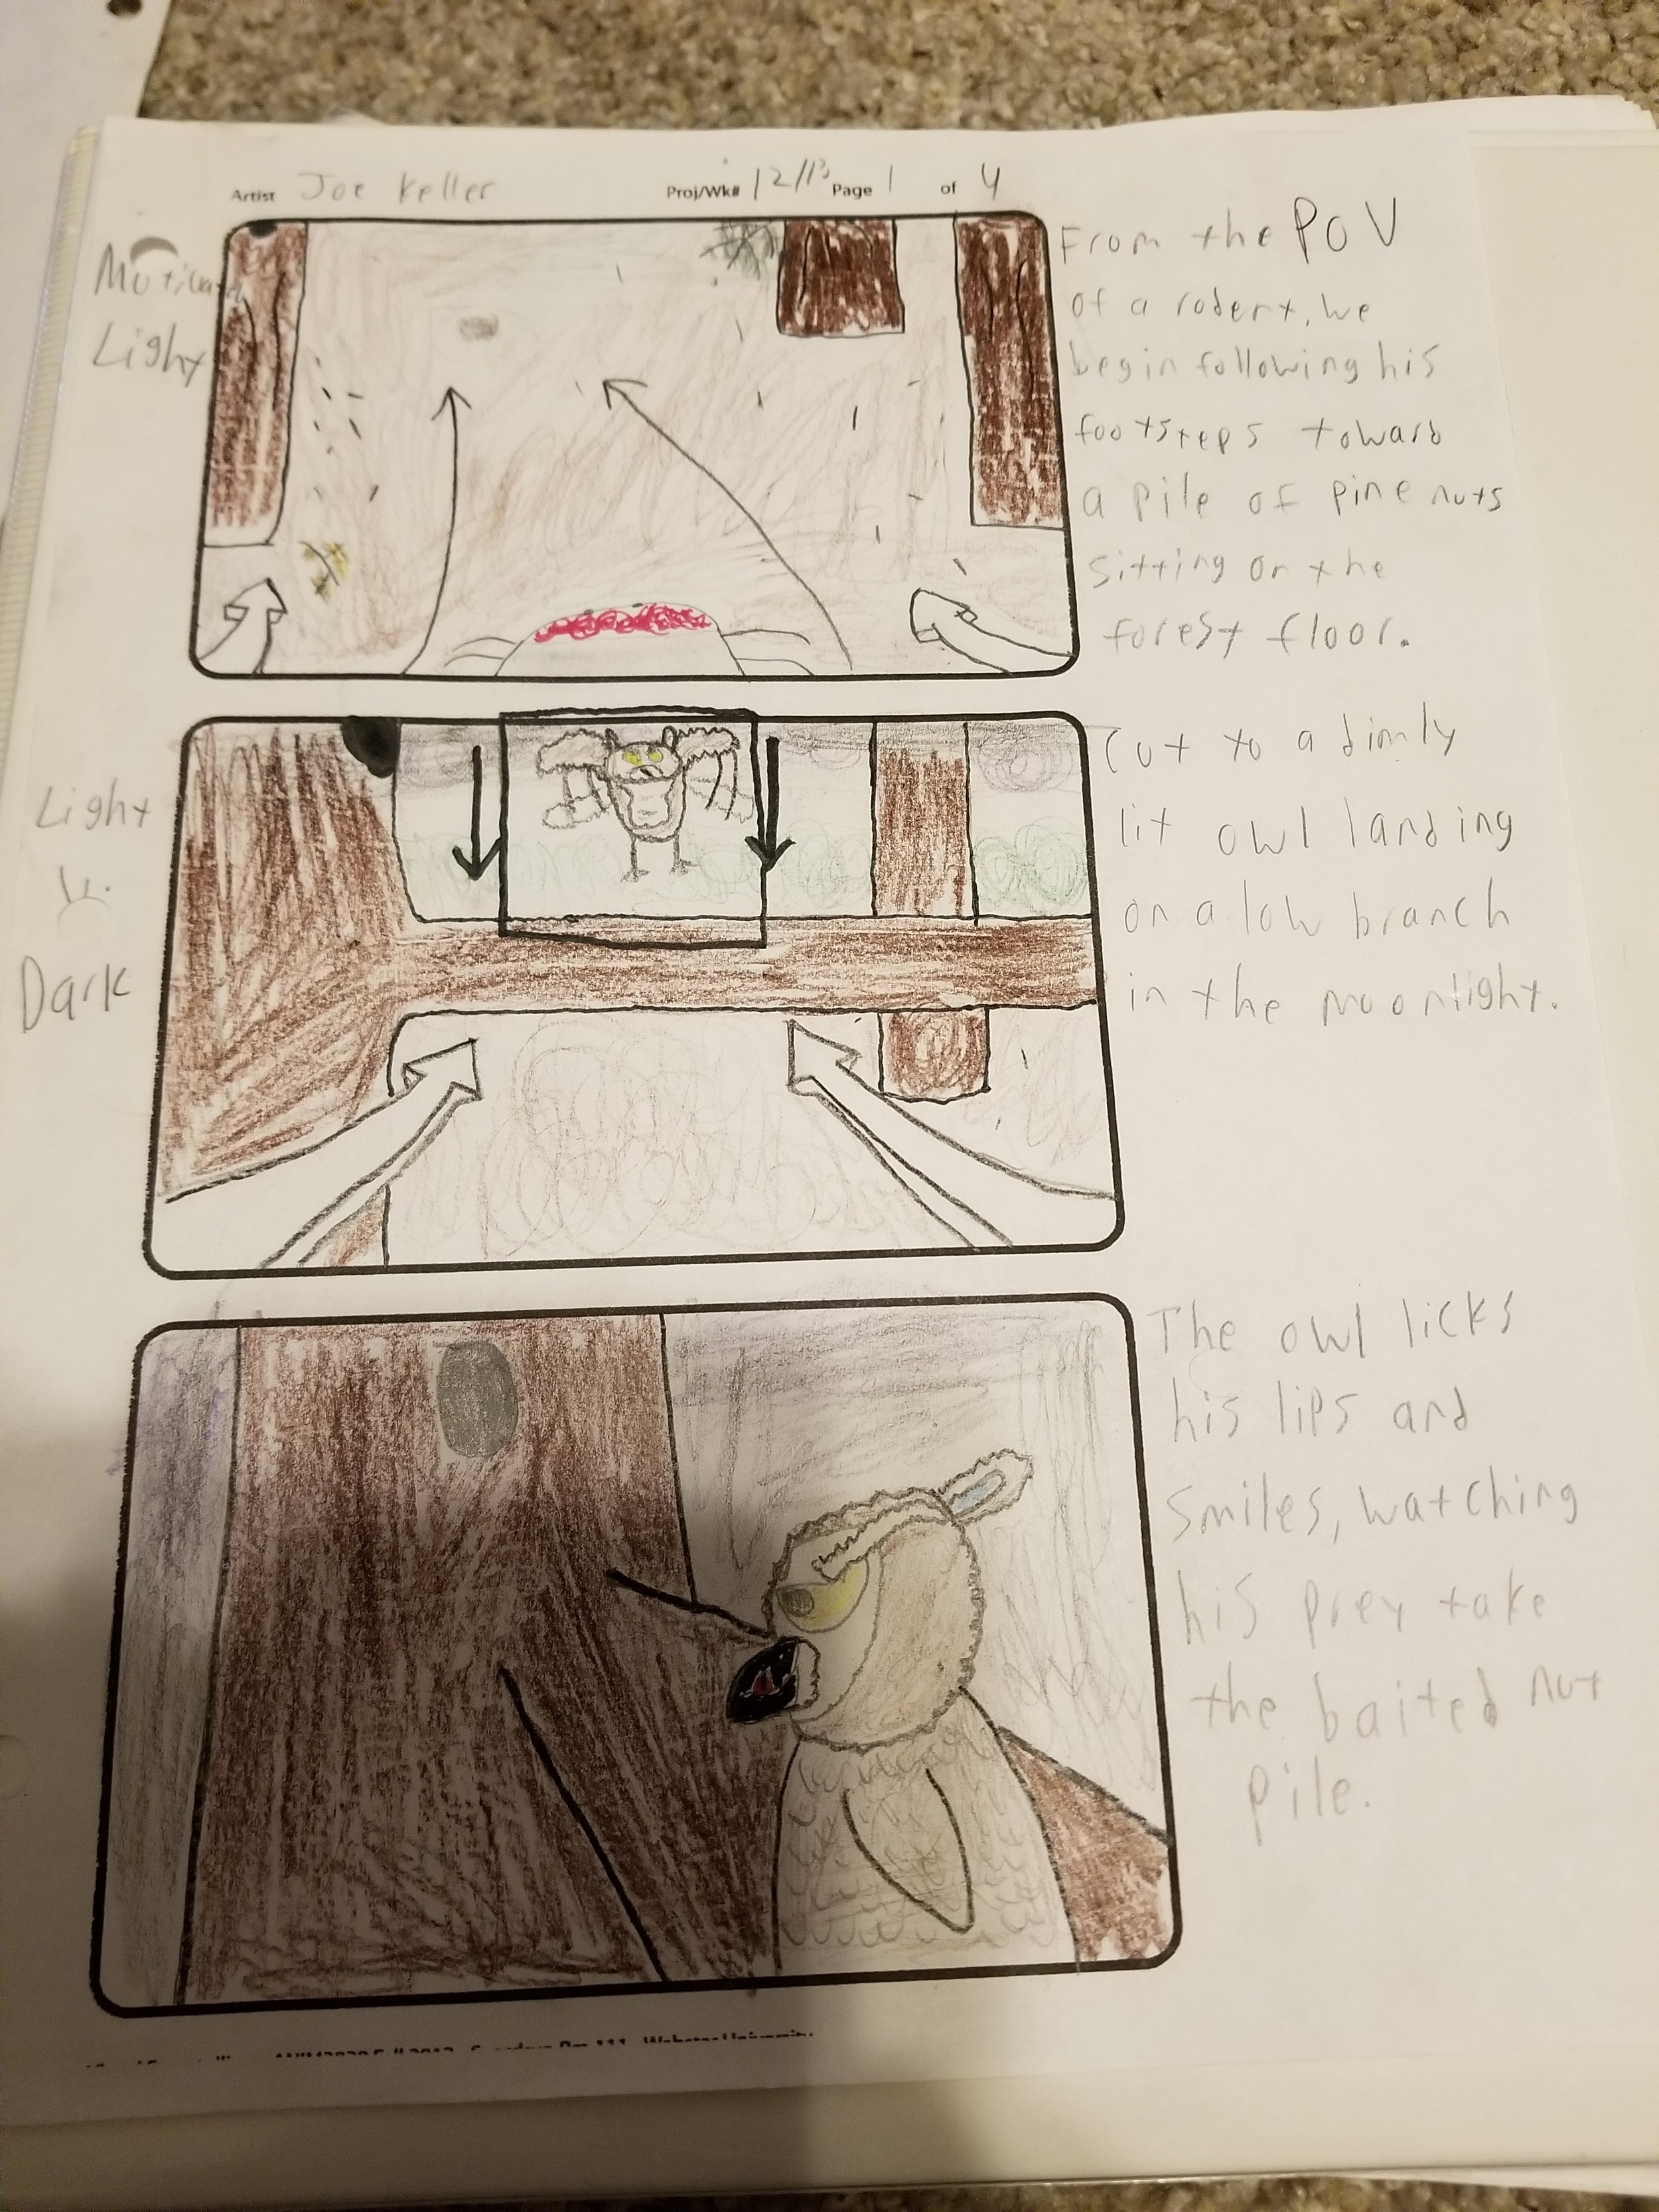 Artist Joe Keller Proj/Wk# 12/13 Page 1 of 4
Light
From the PoV
of a rodent, we
begin following his
footsteps toward
a pile of pine nuts
sitting on the
forest floor.
Light
Dark
Cut to a dimly
lit owl landing
on a low branch
in the moonlight.
The owl licks
his lips and
smiles, watching
his prey take
the baited nut
pile.
Webster University